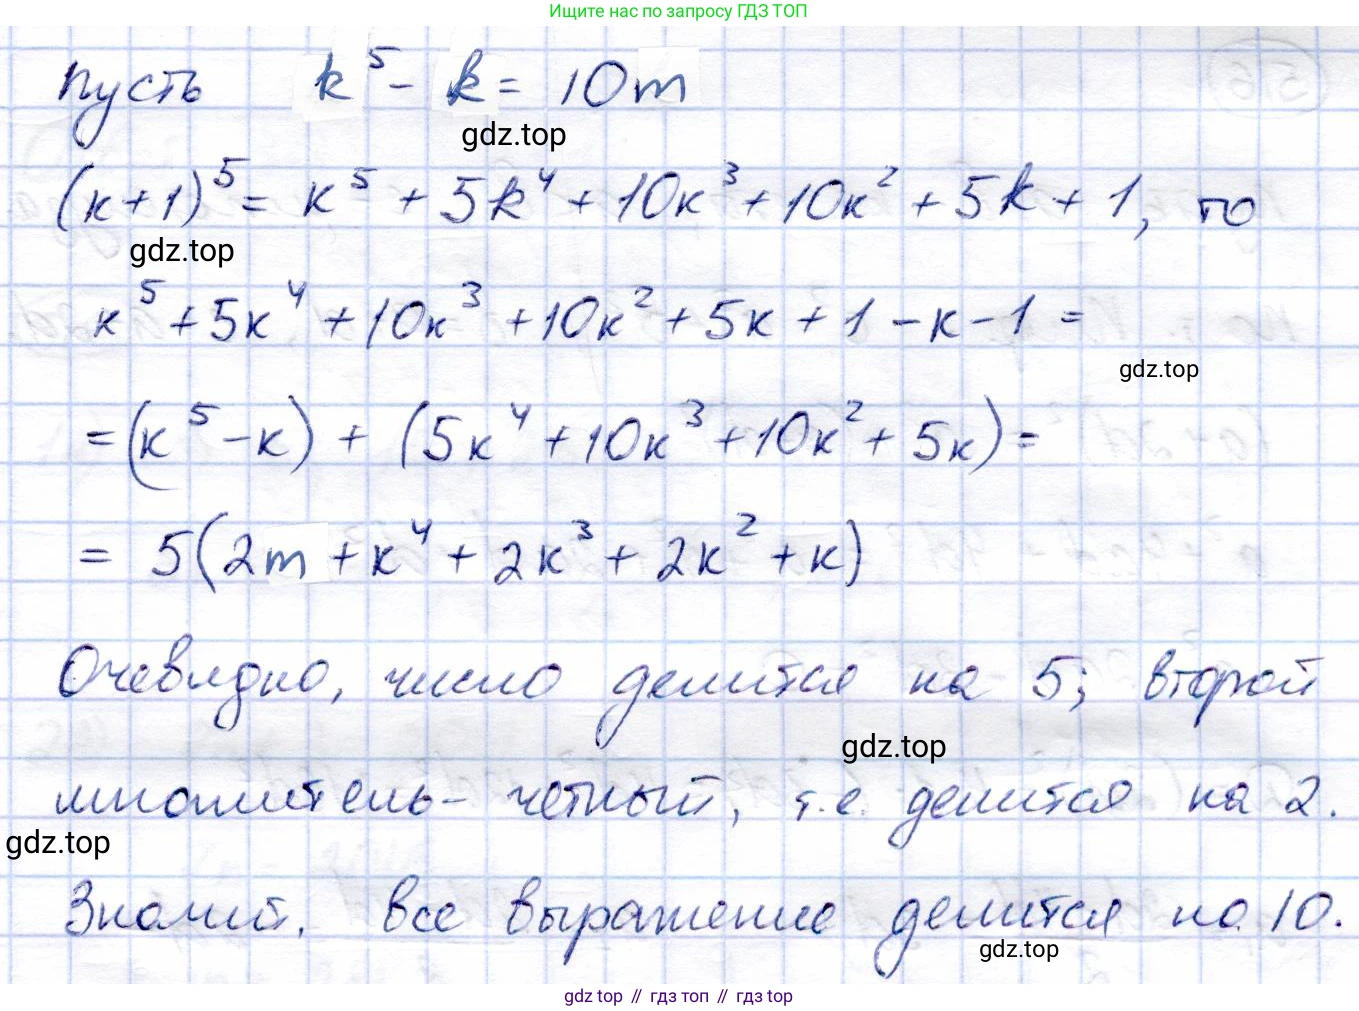 Ищите нас по запросу ГДЗ ТОП
пусть k⁵ - k = 10m
gdz.top
(к+1)⁵ = к⁵ + 5k⁴ + 10к³ + 10к² + 5k + 1, то
gdz.top
к⁵ + 5к⁴ + 10к³ + 10к² + 5к + 1 - к - 1 =
gdz.top
= (к⁵ - к) + (5к⁴ + 10к³ + 10к² + 5к) =
= 5(2m + к⁴ + 2к³ + 2к² + к)
Очевидно, число делится на 5; второй
gdz.top
множитель - четный, т.е. делится на 2.
gdz.top
Значит, все выражение делится на 10.
gdz.top
gdz top // гдз топ // гдз top